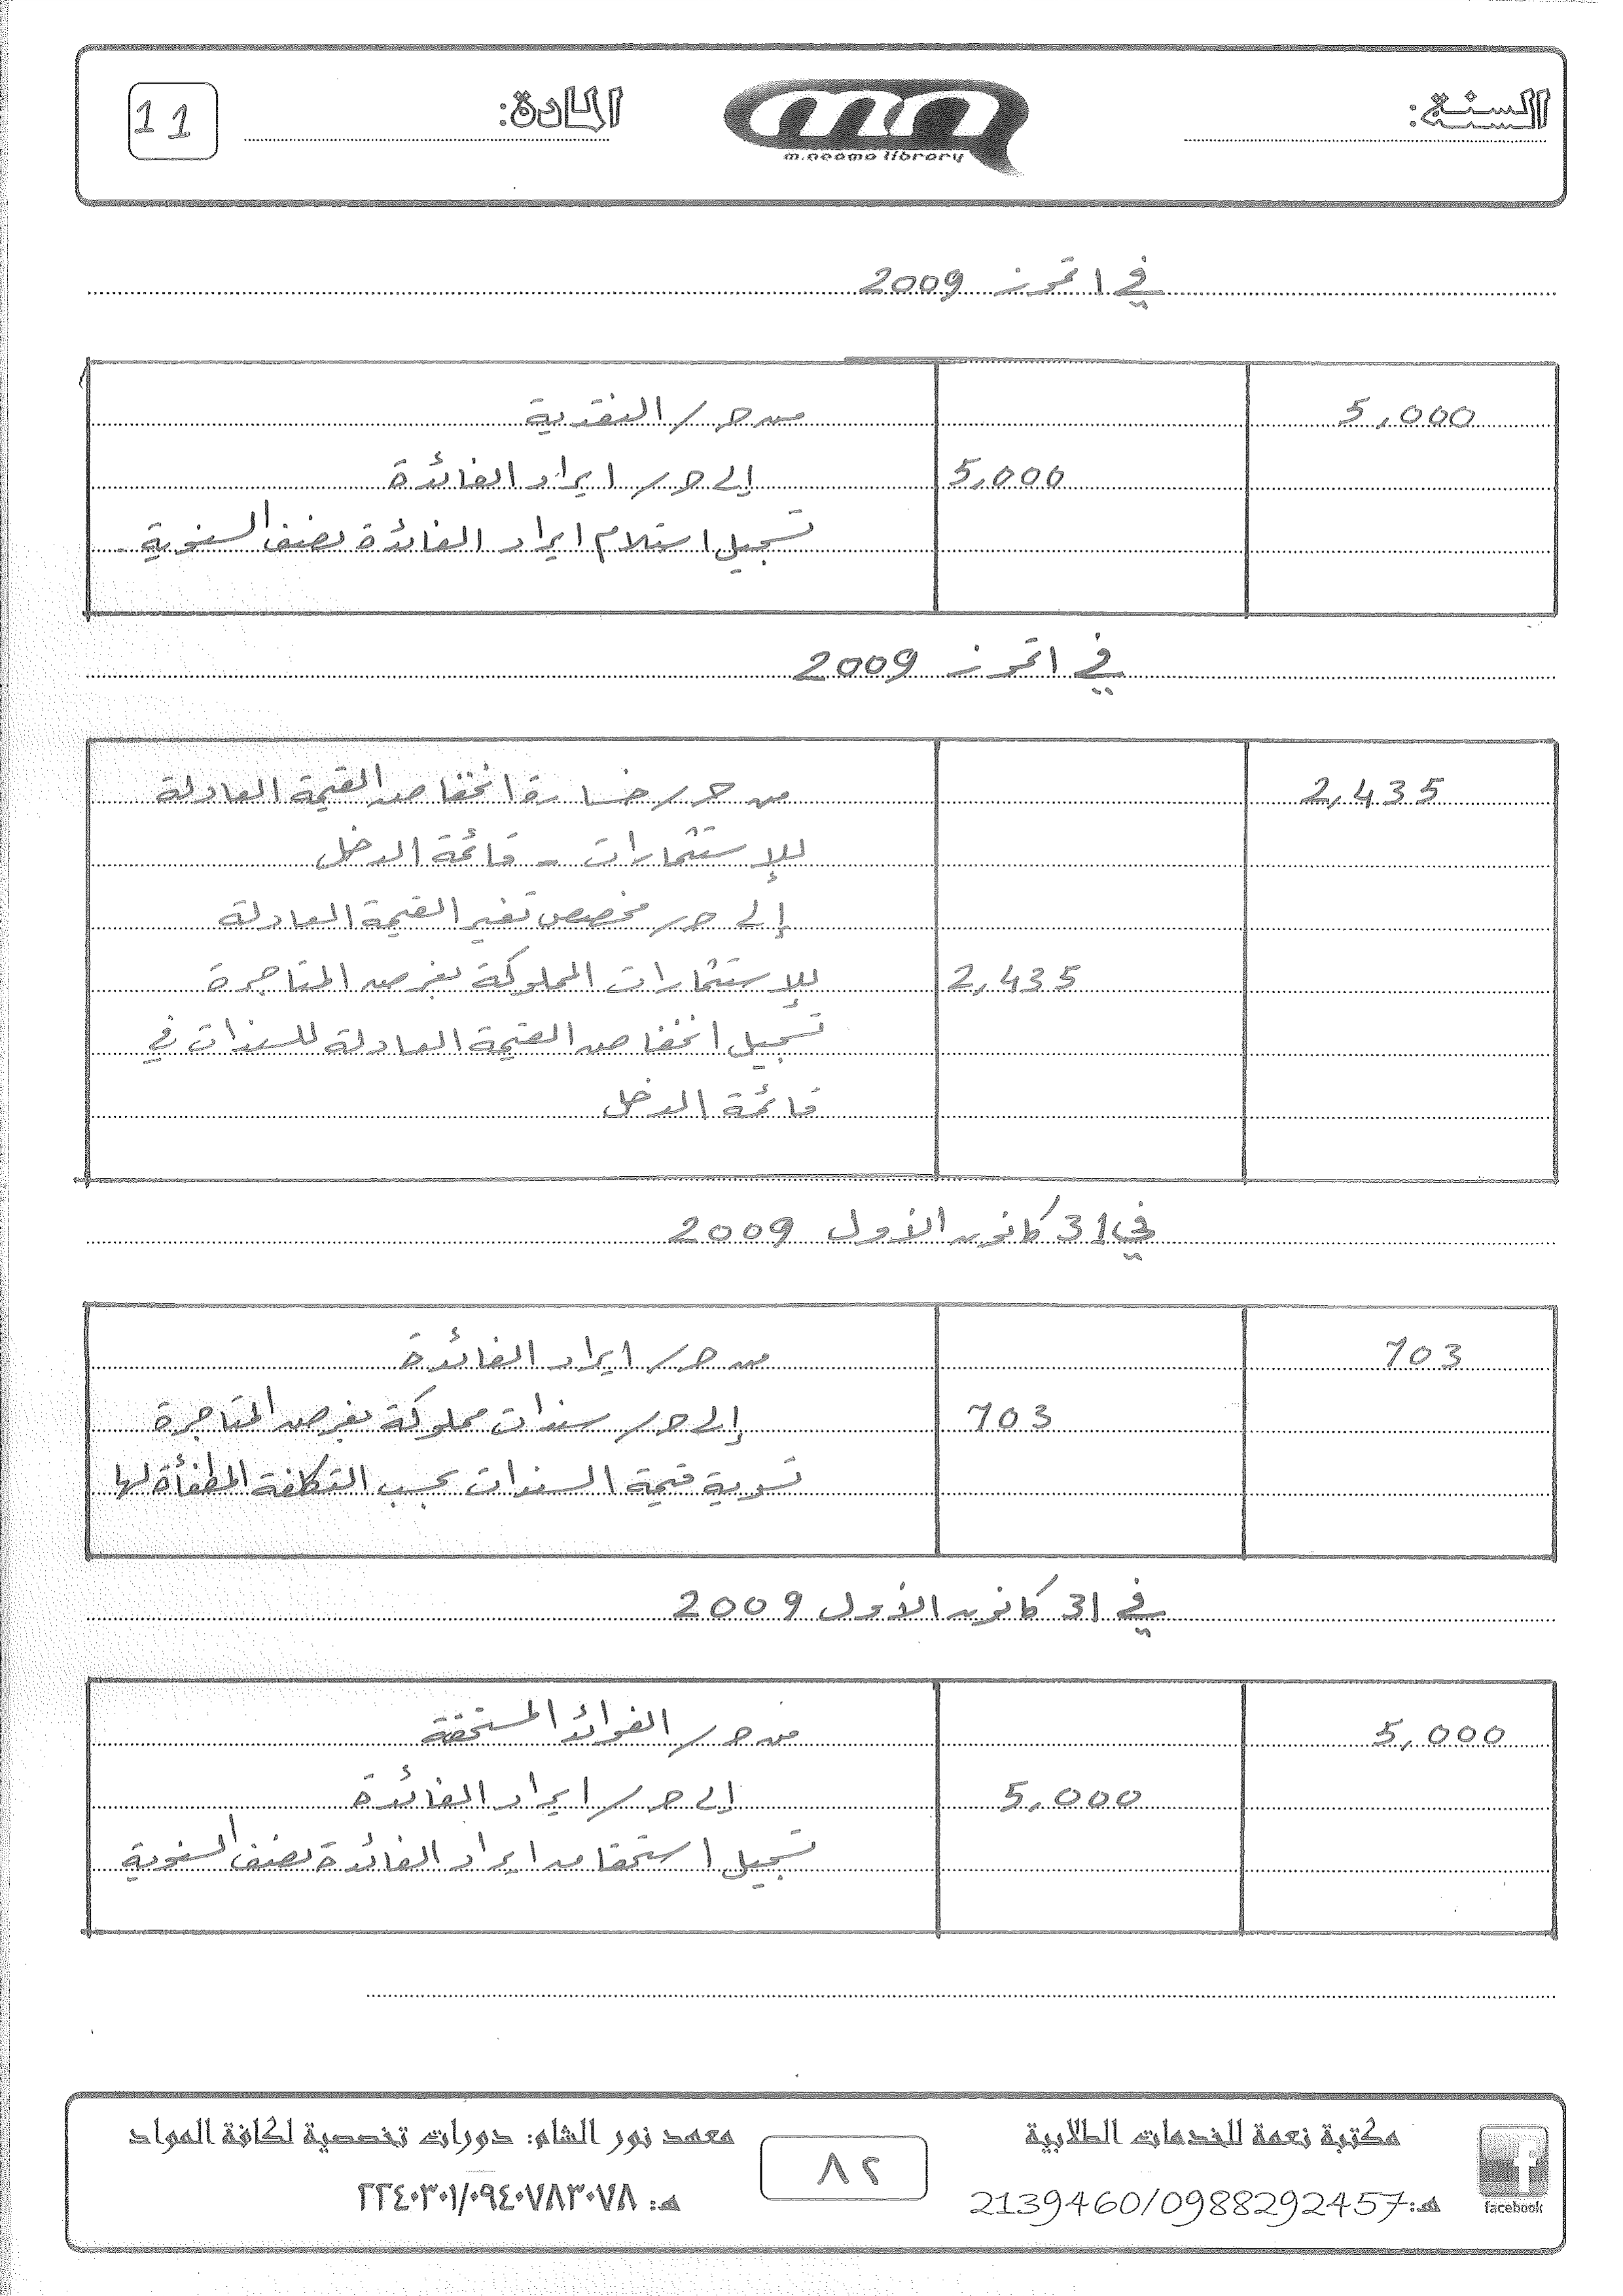 السنة:
m.neama library
المادة:
11
في ١ تموز 2009
5,000 من حـ/ النقدية
5,000 إلى حـ/ ايراد الفائدة
تسجيل استلام ايراد الفائدة نصف السنوية
في ١ تموز 2009
2,435 من حـ/ خسارة انخفاض القيمة العادلة
للإستثمارات - قائمة الدخل
إلى حـ/ مخصص تغير القيمة العادلة
2,435 للإستثمارات المملوكة بغرض المتاجرة
تسجيل انخفاض القيمة العادلة للسندات في
قائمة الدخل
في 31 كانون الأول 2009
703 من حـ/ ايراد الفائدة
703 إلى حـ/ سندات مملوكة بغرض المتاجرة
تسوية قيمة السندات بحسب التكلفة المطفأة لها
في 31 كانون الأول 2009
5,000 من حـ/ الفوائد المستحقة
5,000 إلى حـ/ ايراد الفائدة
تسجيل استحقاق ايراد الفائدة نصف السنوية
مكتبة نعمة للخدمات الطلابية
هـ: 2139460/0988292457
facebook
٨٢
معهد نور الشام: دورات تخصصية لكافة المواد
هـ: ٢٢٤٠٣٠١/٠٩٤٠٧٨٣٠٧٨